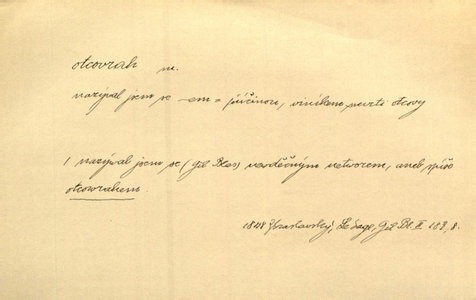 otcovrah m.
nazýval jsem se -em = příčinou, viníkem smrti otcovy
/ nazýval jsem se (Gil Blas) nevděčným netvorem, aneb spíše
otcovrahem.
1848 Zbraslavský, Le Sage, Gil Bl. II. 188, 8.